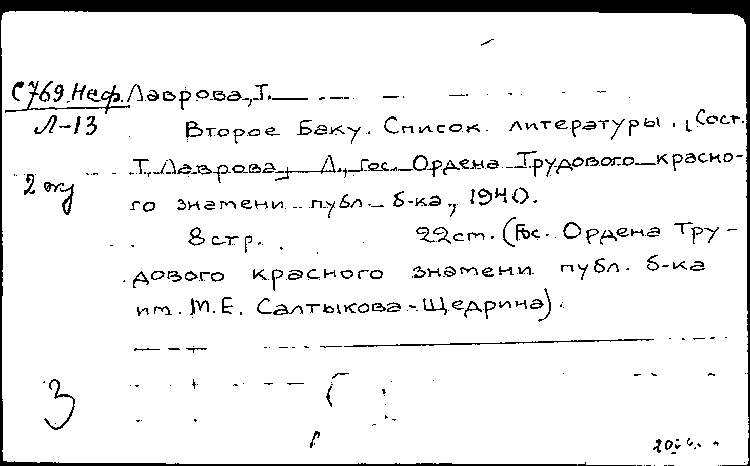 С769.Неф. Лаврова, Т.
Л-13
Второе Баку. Список литературы. [Сост.
Т. Лаврова], Л., Гос. Ордена Трудового красно-
2 экз
го знамени публ. б-ка, 1940.
8 стр. 22 ст. (Гос. Ордена Тру-
дового красного знамени публ. б-ка
им. М.Е. Салтыкова-Щедрина).
3